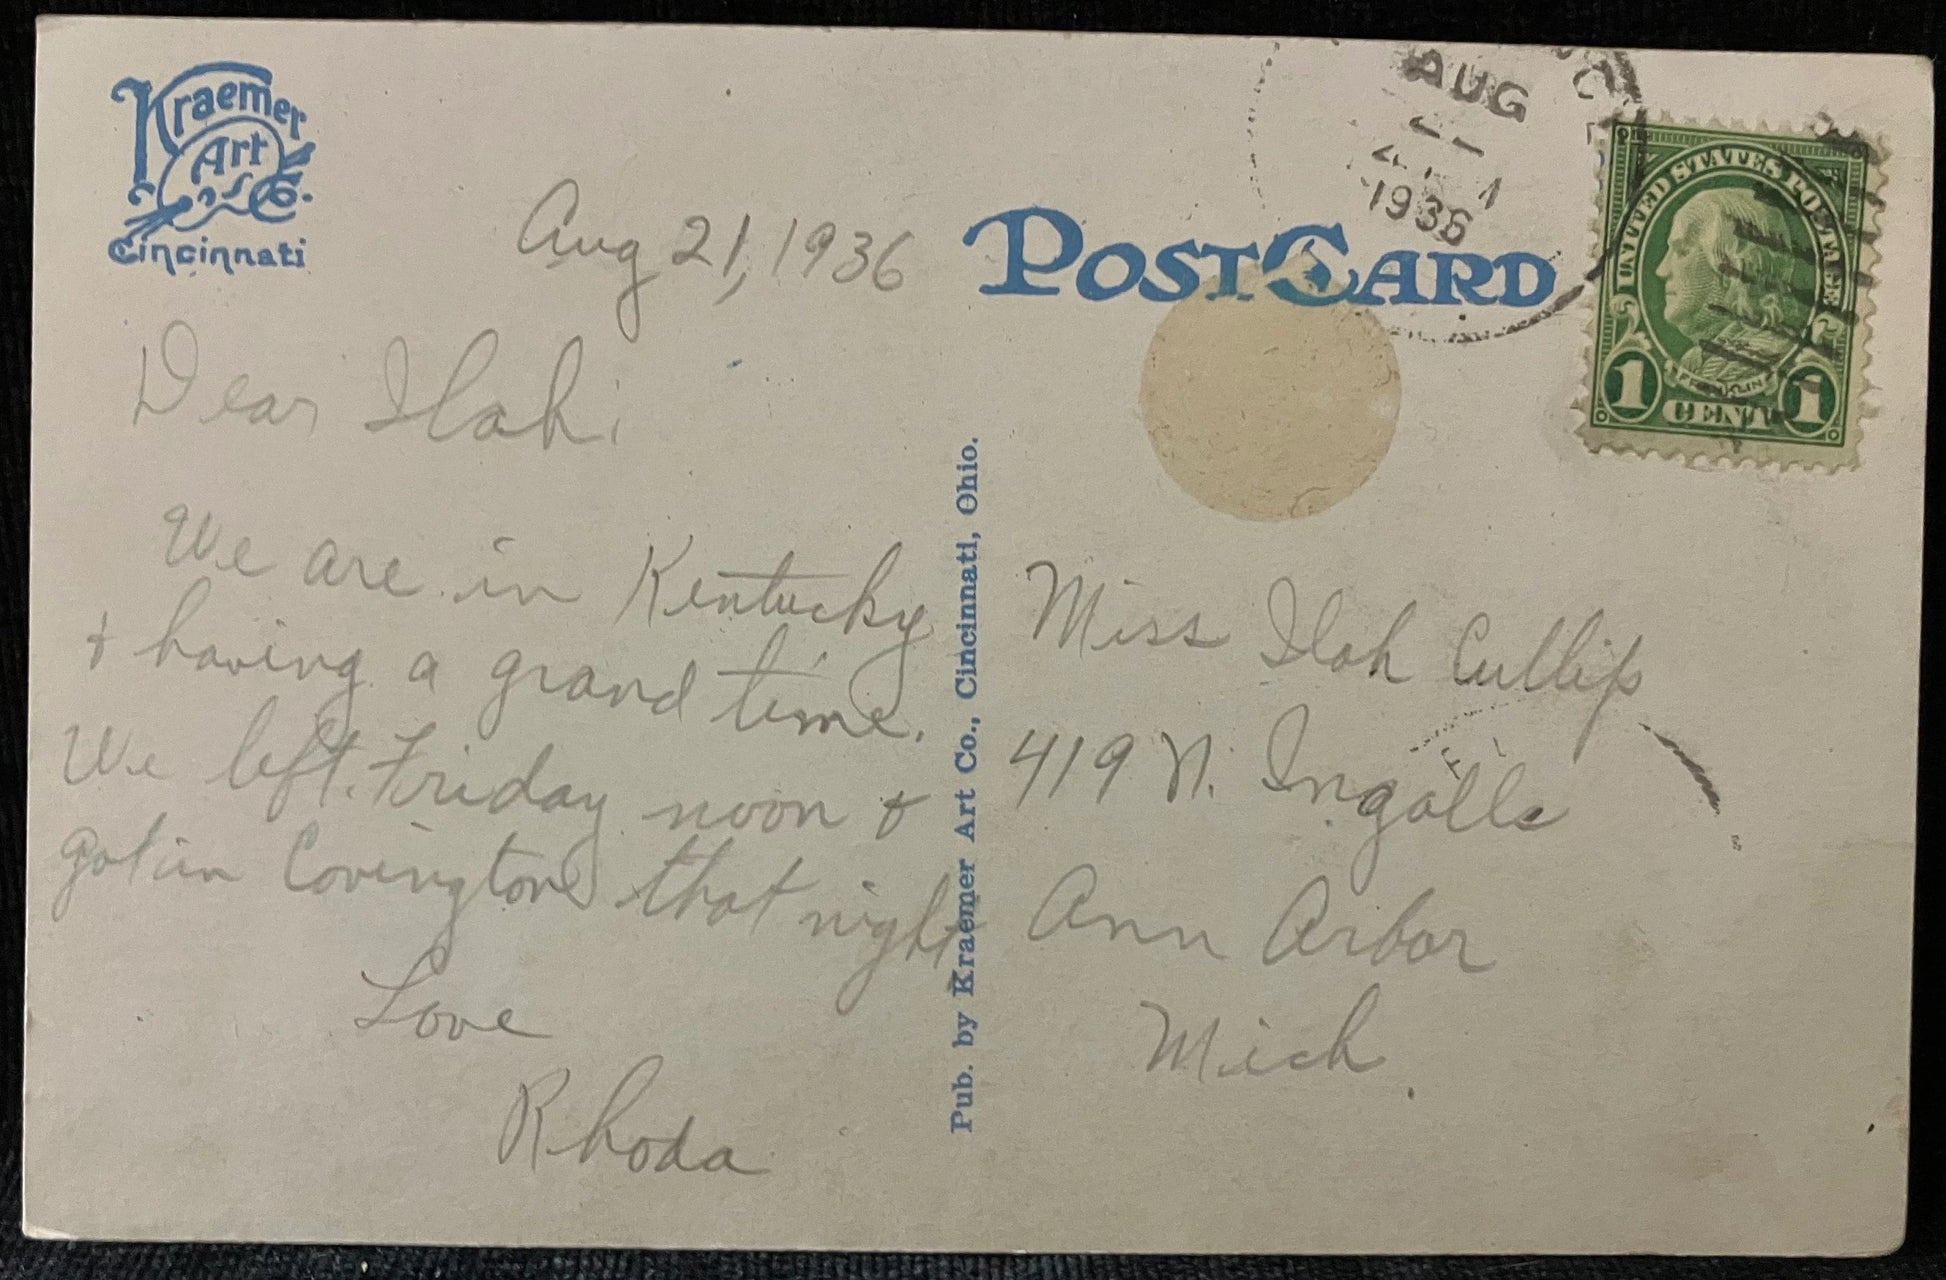 Kraemer
Art
Co.
Cincinnati
Aug 21, 1936
Dear Ilah,
We are in Kentucky
+ having a grand time.
We left Friday noon +
got in Covington that night
Love
Rhoda
Pub. by Kraemer Art Co., Cincinnati, Ohio.
POST CARD
AUG
1936
UNITED STATES POSTAGE
FRANKLIN
1 CENT 1
Miss Ilah Cullip
419 N. Ingalls
Ann Arbor
Mich.